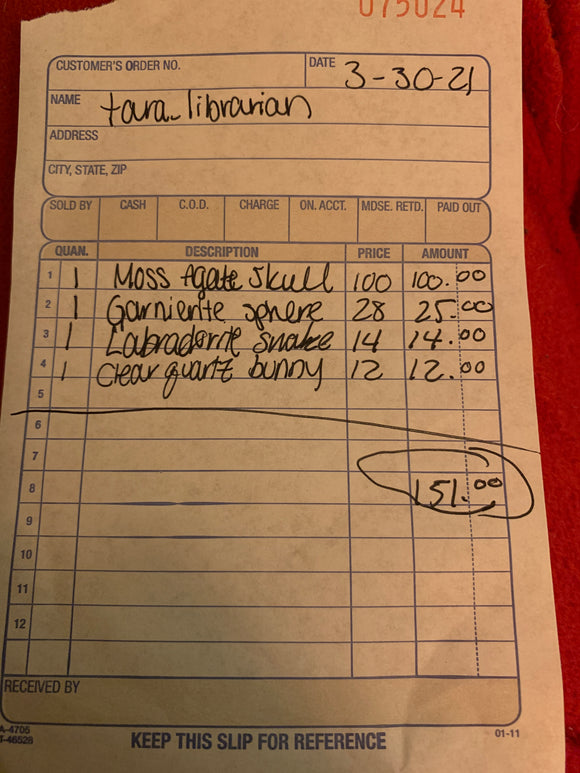 075024
CUSTOMER'S ORDER NO. DATE 3-30-21
NAME tara_librarian
ADDRESS
CITY, STATE, ZIP
SOLD BY CASH C.O.D. CHARGE ON. ACCT. MDSE. RETD. PAID OUT
QUAN. DESCRIPTION PRICE AMOUNT
1 1 Moss Agate Skull 100 100.00
2 1 Garnierite sphere 28 25.00
3 1 Labradorite snake 14 14.00
4 1 Clear quartz bunny 12 12.00
5
6
7
8 151.00
9
10
11
12
RECEIVED BY
A-4705
T-46528 KEEP THIS SLIP FOR REFERENCE 01-11